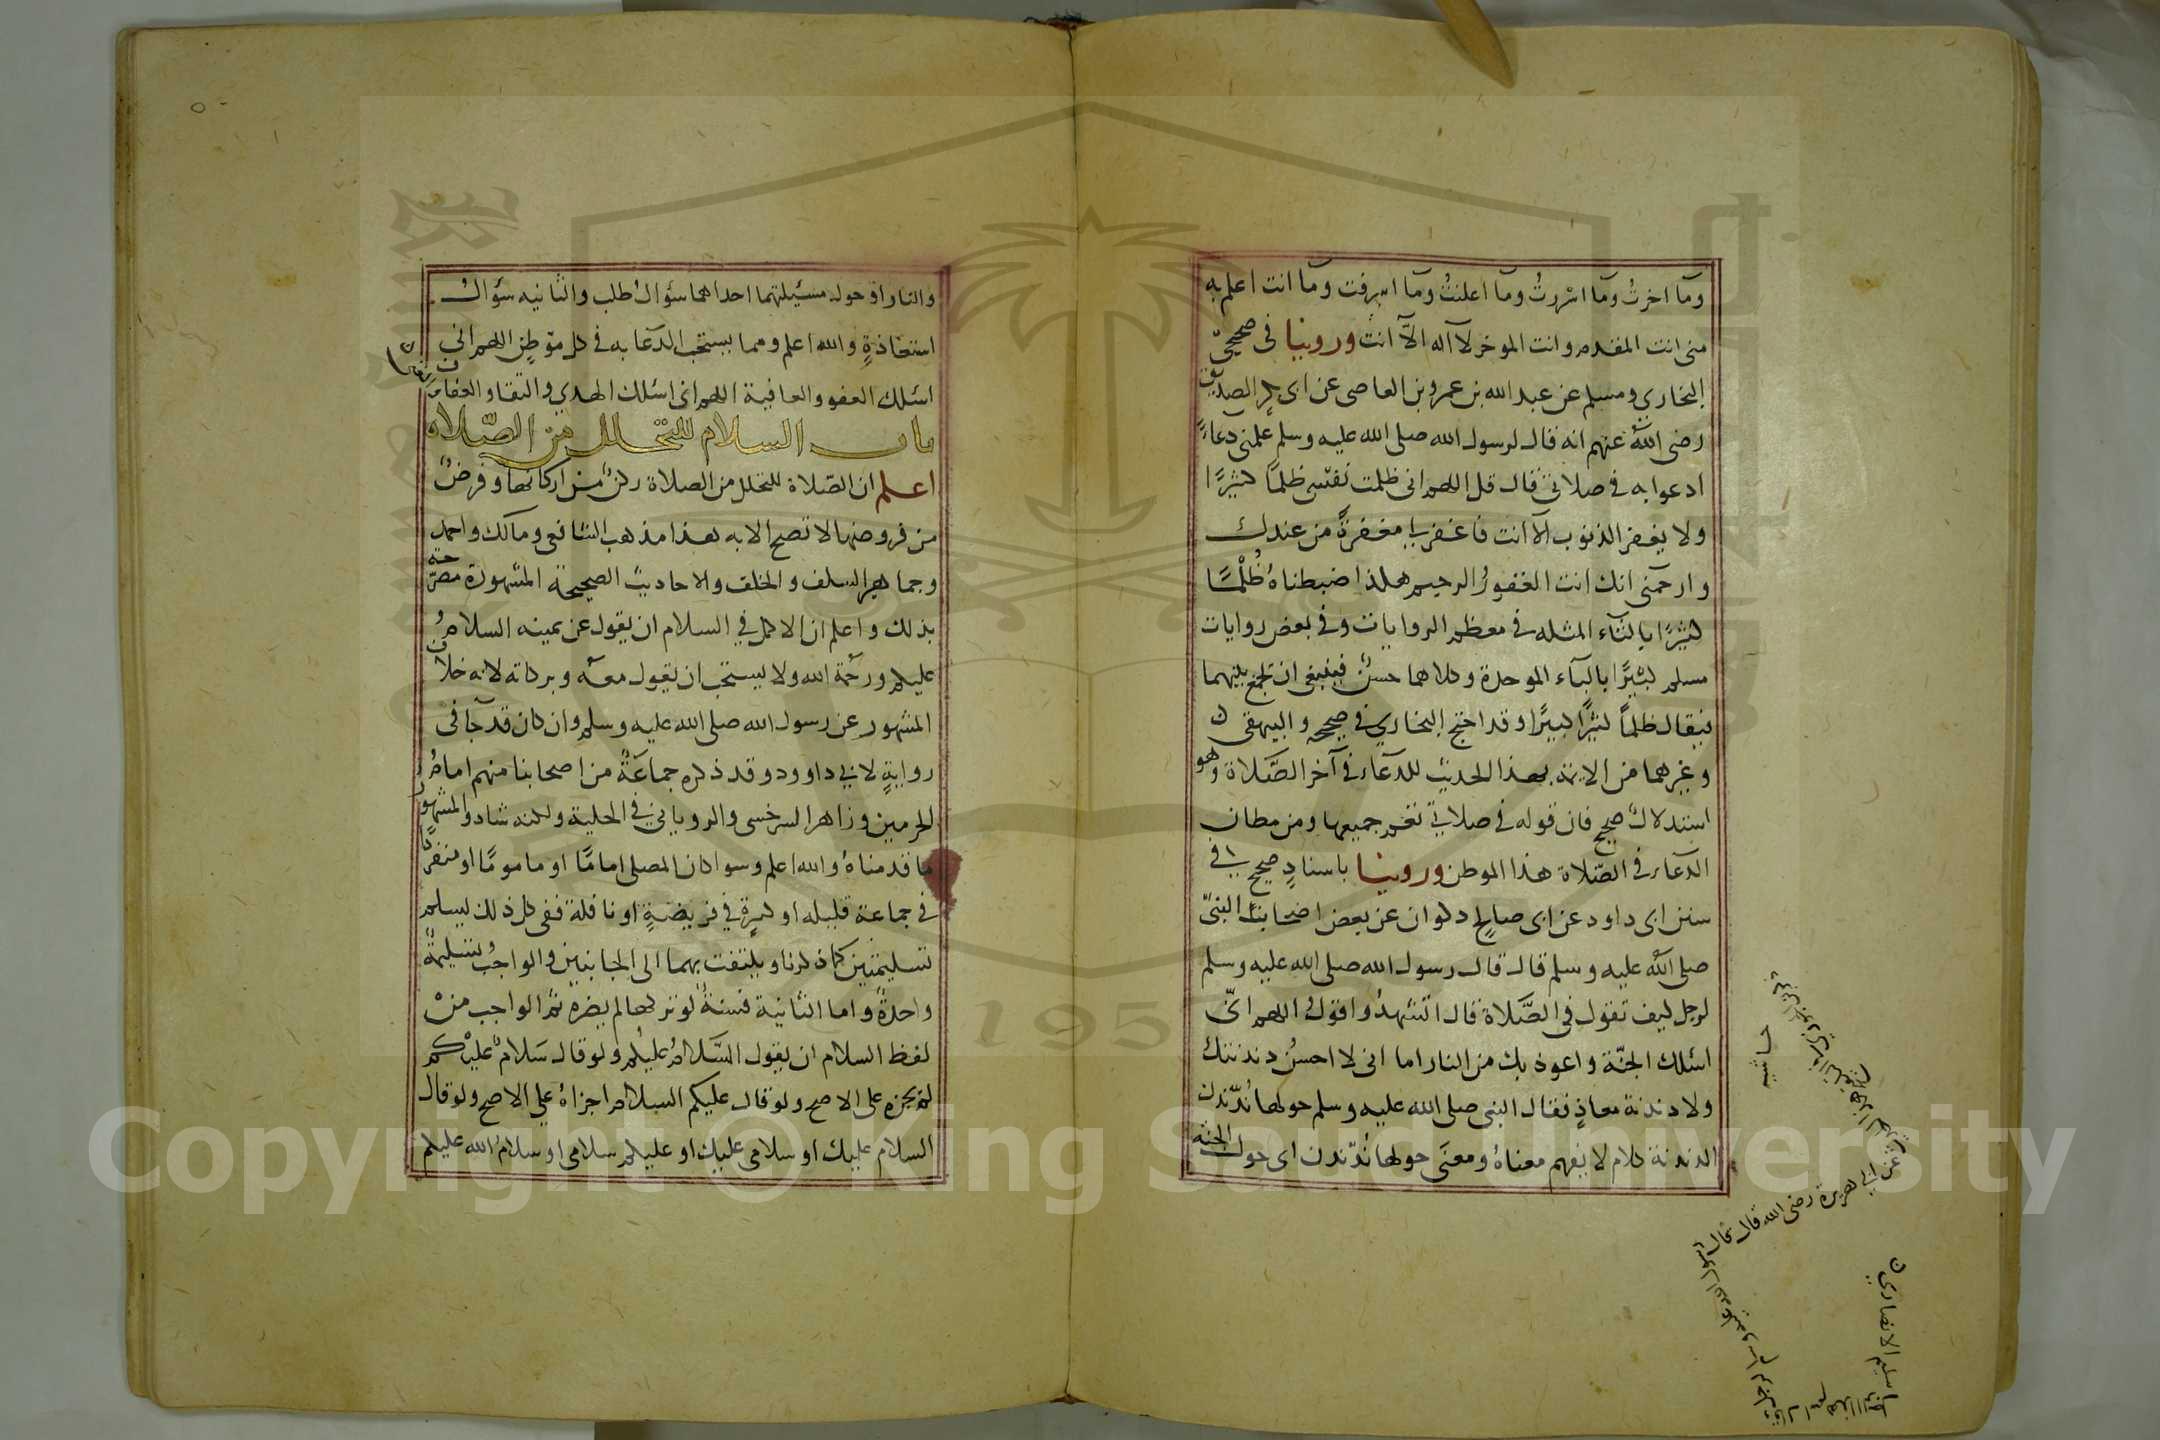 وما اخرتُ وما اسررتُ وما اعلنتُ وما اسرفت وما انت اعلم به
منى انت المقدم وانت الموخر لا اله الا انت وروينا فى صحيحى
البخاري ومسلم عن عبد الله بن عمرو بن العاصى عن ابى بكر الصديق
رضى الله عنهم انه قال لرسول الله صلى الله عليه وسلم علمنى دعاءً
ادعوا به فى صلاتى قال قل اللهم انى ظلمت نفسى ظلمًا كثيرًا
ولا يغفر الذنوب الا انت فاغفر لى مغفرةً من عندك
وارحمنى انك انت الغفورُ الرحيم هكذا ضبطناهُ ظُلْمًا
كثيرًا بالثاء المثلثه فى معظم الروايات وفى بعض روايات
مسلم كبيرًا بالباء الموحدة وكلاهما حسنٌ فينبغى ان تجمع بينهما
فيقال ظلماً كثيرًا كبيرًا وقد احتج البخاري فى صحيحه والبيهقى
وغيرهما من الائمه بهذا الحديث للدعاء فى آخر الصلاة وهو
استدلالٌ صحيح فان قوله فى صلاتى تعم جميعها ومن مظان
الدعاء فى الصلاة هذا الموطن وروينا باسنادٍ صحيح فى
سنن ابى داود عن ابى صالحٍ ذكوان عن بعض اصحاب النبىّ
صلى الله عليه وسلم قال قال رسول الله صلى الله عليه وسلم
لرجل كيف تقول فى الصّلاة قال اتشهدُ واقولُ اللهم انّى
اسئلك الجنّة واعوذ بك من النار اما انى لا احسنُ دندنتك
ولا دندنة معاذٍ فقال النبى صلى الله عليه وسلم حولها نُدّندن
الدندنة كلام لا يفهم معناهُ ومعنَى حولها نُدّندن اى حول الجنّه
حاشيه
عن ابي هريرة رضى الله قال قال
الانصاري
والنار او حول مسئيلتهما احداهما سؤالُ طلب والثانيه سؤالُ
استعاذةٍ والله اعلم ومما يستحب الدعا به فى كل موطنٍ اللهم انى
اسئلك العفو والعافية اللهم انى اسئلك الهدي والتقا والعفاف
باب السلام للتحلل من الصّلاه
اعلم ان الصّلاة للتحلل من الصلاة ركنٌ من اركانها وفرضٌ
من فروضها لا تصح الا به هذا مذهب الشافعى ومالك واحمد
وجماهير السلف والخلف والاحاديث الصحيحة المشهورة مصرّحة
بذلك واعلم ان الاكمل في السلام ان يقول عن يمينه السلامُ
عليكم ورحمة الله ولا يستحب ان يقول معه وبركاته لانه خلاف
المشهور عن رسول الله صلى الله عليه وسلم وان كان قد جآ فى
روايةٍ لابي داوود وقد ذكره جماعَةٌ من اصحابنا منهم امامُ
الحرمين وزاهر السرخسى والروياني في الحلية ولكنه شاذ والمشهور
ما قدمناهُ والله اعلم وسوا كان المصلى امامًا او مامومًا او منفردًا
فى جماعة قليله او كثيرةٍ في فريضةٍ او نافلة ففى كل ذلك يسلم
تسليمتين كما ذكرنا ويلتفت بهما الى الجانبين والواجبُ تسليمةٌ
واحدةٌ واما الثانية فسنةٌ لو تركها لم يضره ثم الواجب منْ
لفظ السلام ان يقول السّلامُ عليكم ولو قال سَلامٌ عليْكم
لم يجزه على الاصح ولو قال عليكم السلام اجزاهُ علي الاصح ولو قال
السلام عليك او سلامى عليك او عليكم سلامى او سلامُ الله عليكم
Copyright © King Saud University
1957